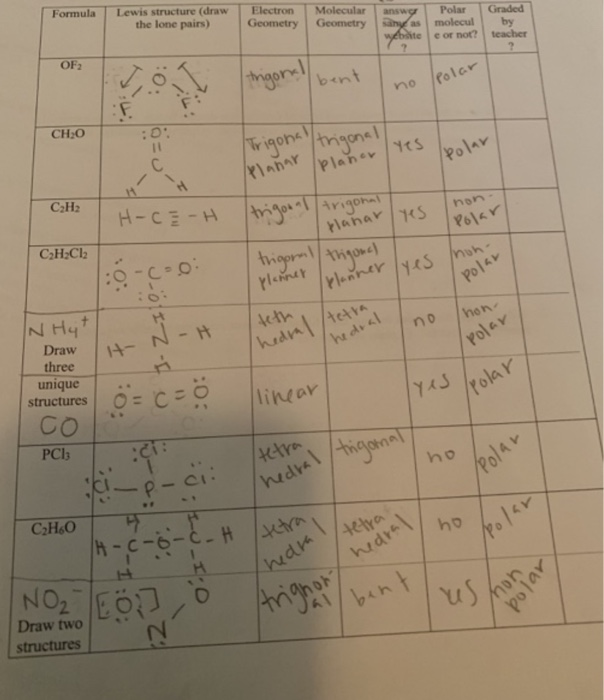 Formula Lewis structure (draw the lone pairs) Electron Geometry Molecular Geometry answer same as website ? Polar molecul e or not? Graded by teacher ?
OF₂ :O: :F: :F: trigonal bent no polar
CH₂O :O: || C H H Trigonal planar trigonal planer yes polar
C₂H₂ H-C≡-H trigonal trigonal planar yes non-polar
C₂H₂Cl₂ :O-C=O: :O: trigonal planner trigonal planner yes non-polar
NH4+ H H-N-H H tetra hedral tetra hedral no non-polar
Draw three unique structures
CO O=C=O linear yes polar
PCl₃ :Cl: :Cl-P-Cl: tetra hedral trigonal no polar
C₂H₆O H H H-C-O-C-H H H tetra hedral tetra hedral no polar
NO2- [:O:] N O trignor al bent yes non polar
Draw two structures